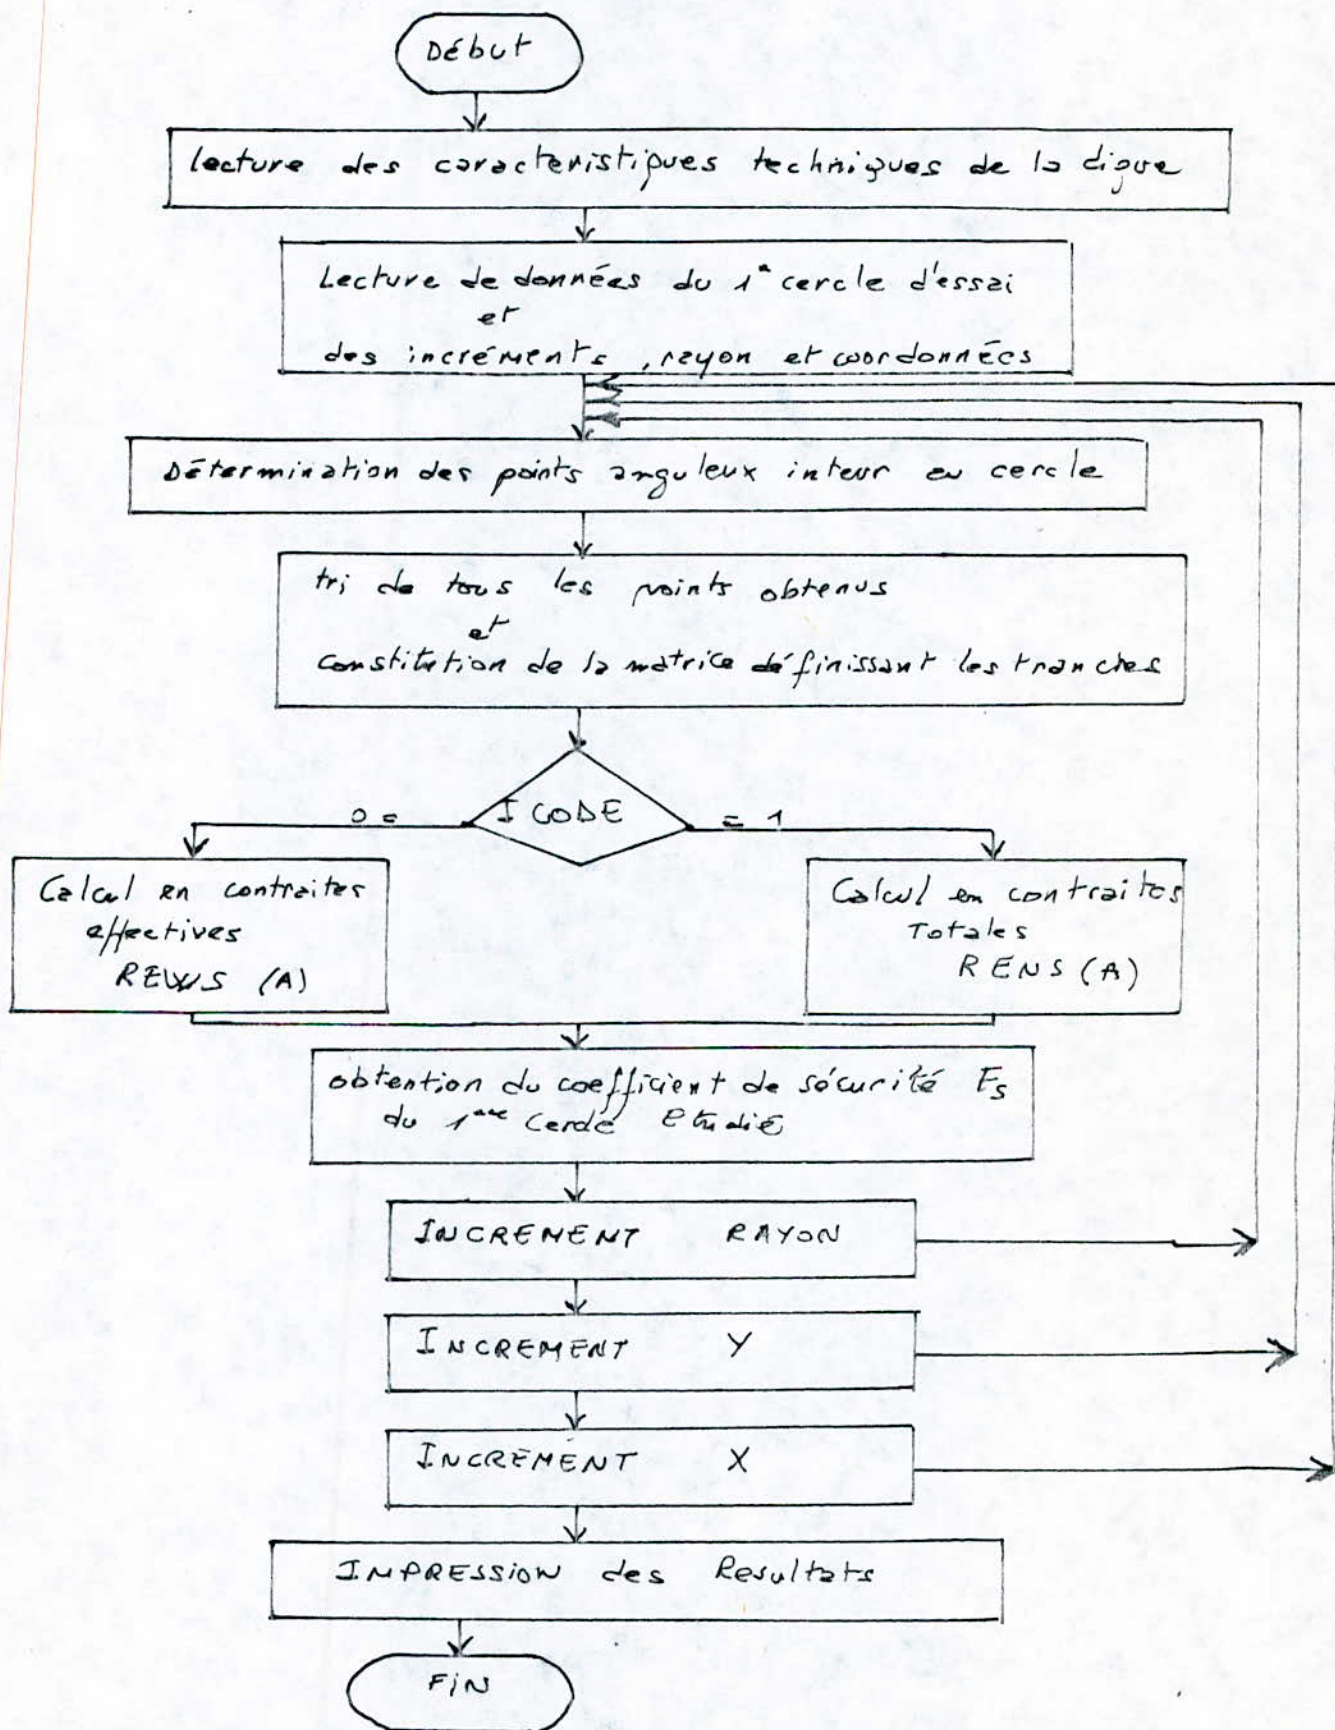 Début
lecture des caracteristiques techniques de la digue
Lecture de données du 1er cercle d'essai
et
des incréments, rayon et coordonnées
Détermination des points anguleux inteur au cercle
tri de tous les points obtenus
et
constitution de la matrice définissant les tranches
0 =
I CODE
= 1
Calcul en contraites
effectives
(A)
Calcul en contraites
Totales
RENS (A)
obtention du coefficient de sécurité Fs
du cercle etudié
INCREMENT RAYON
INCREMENT Y
INCREMENT X
IMPRESSION des Resultats
FiN